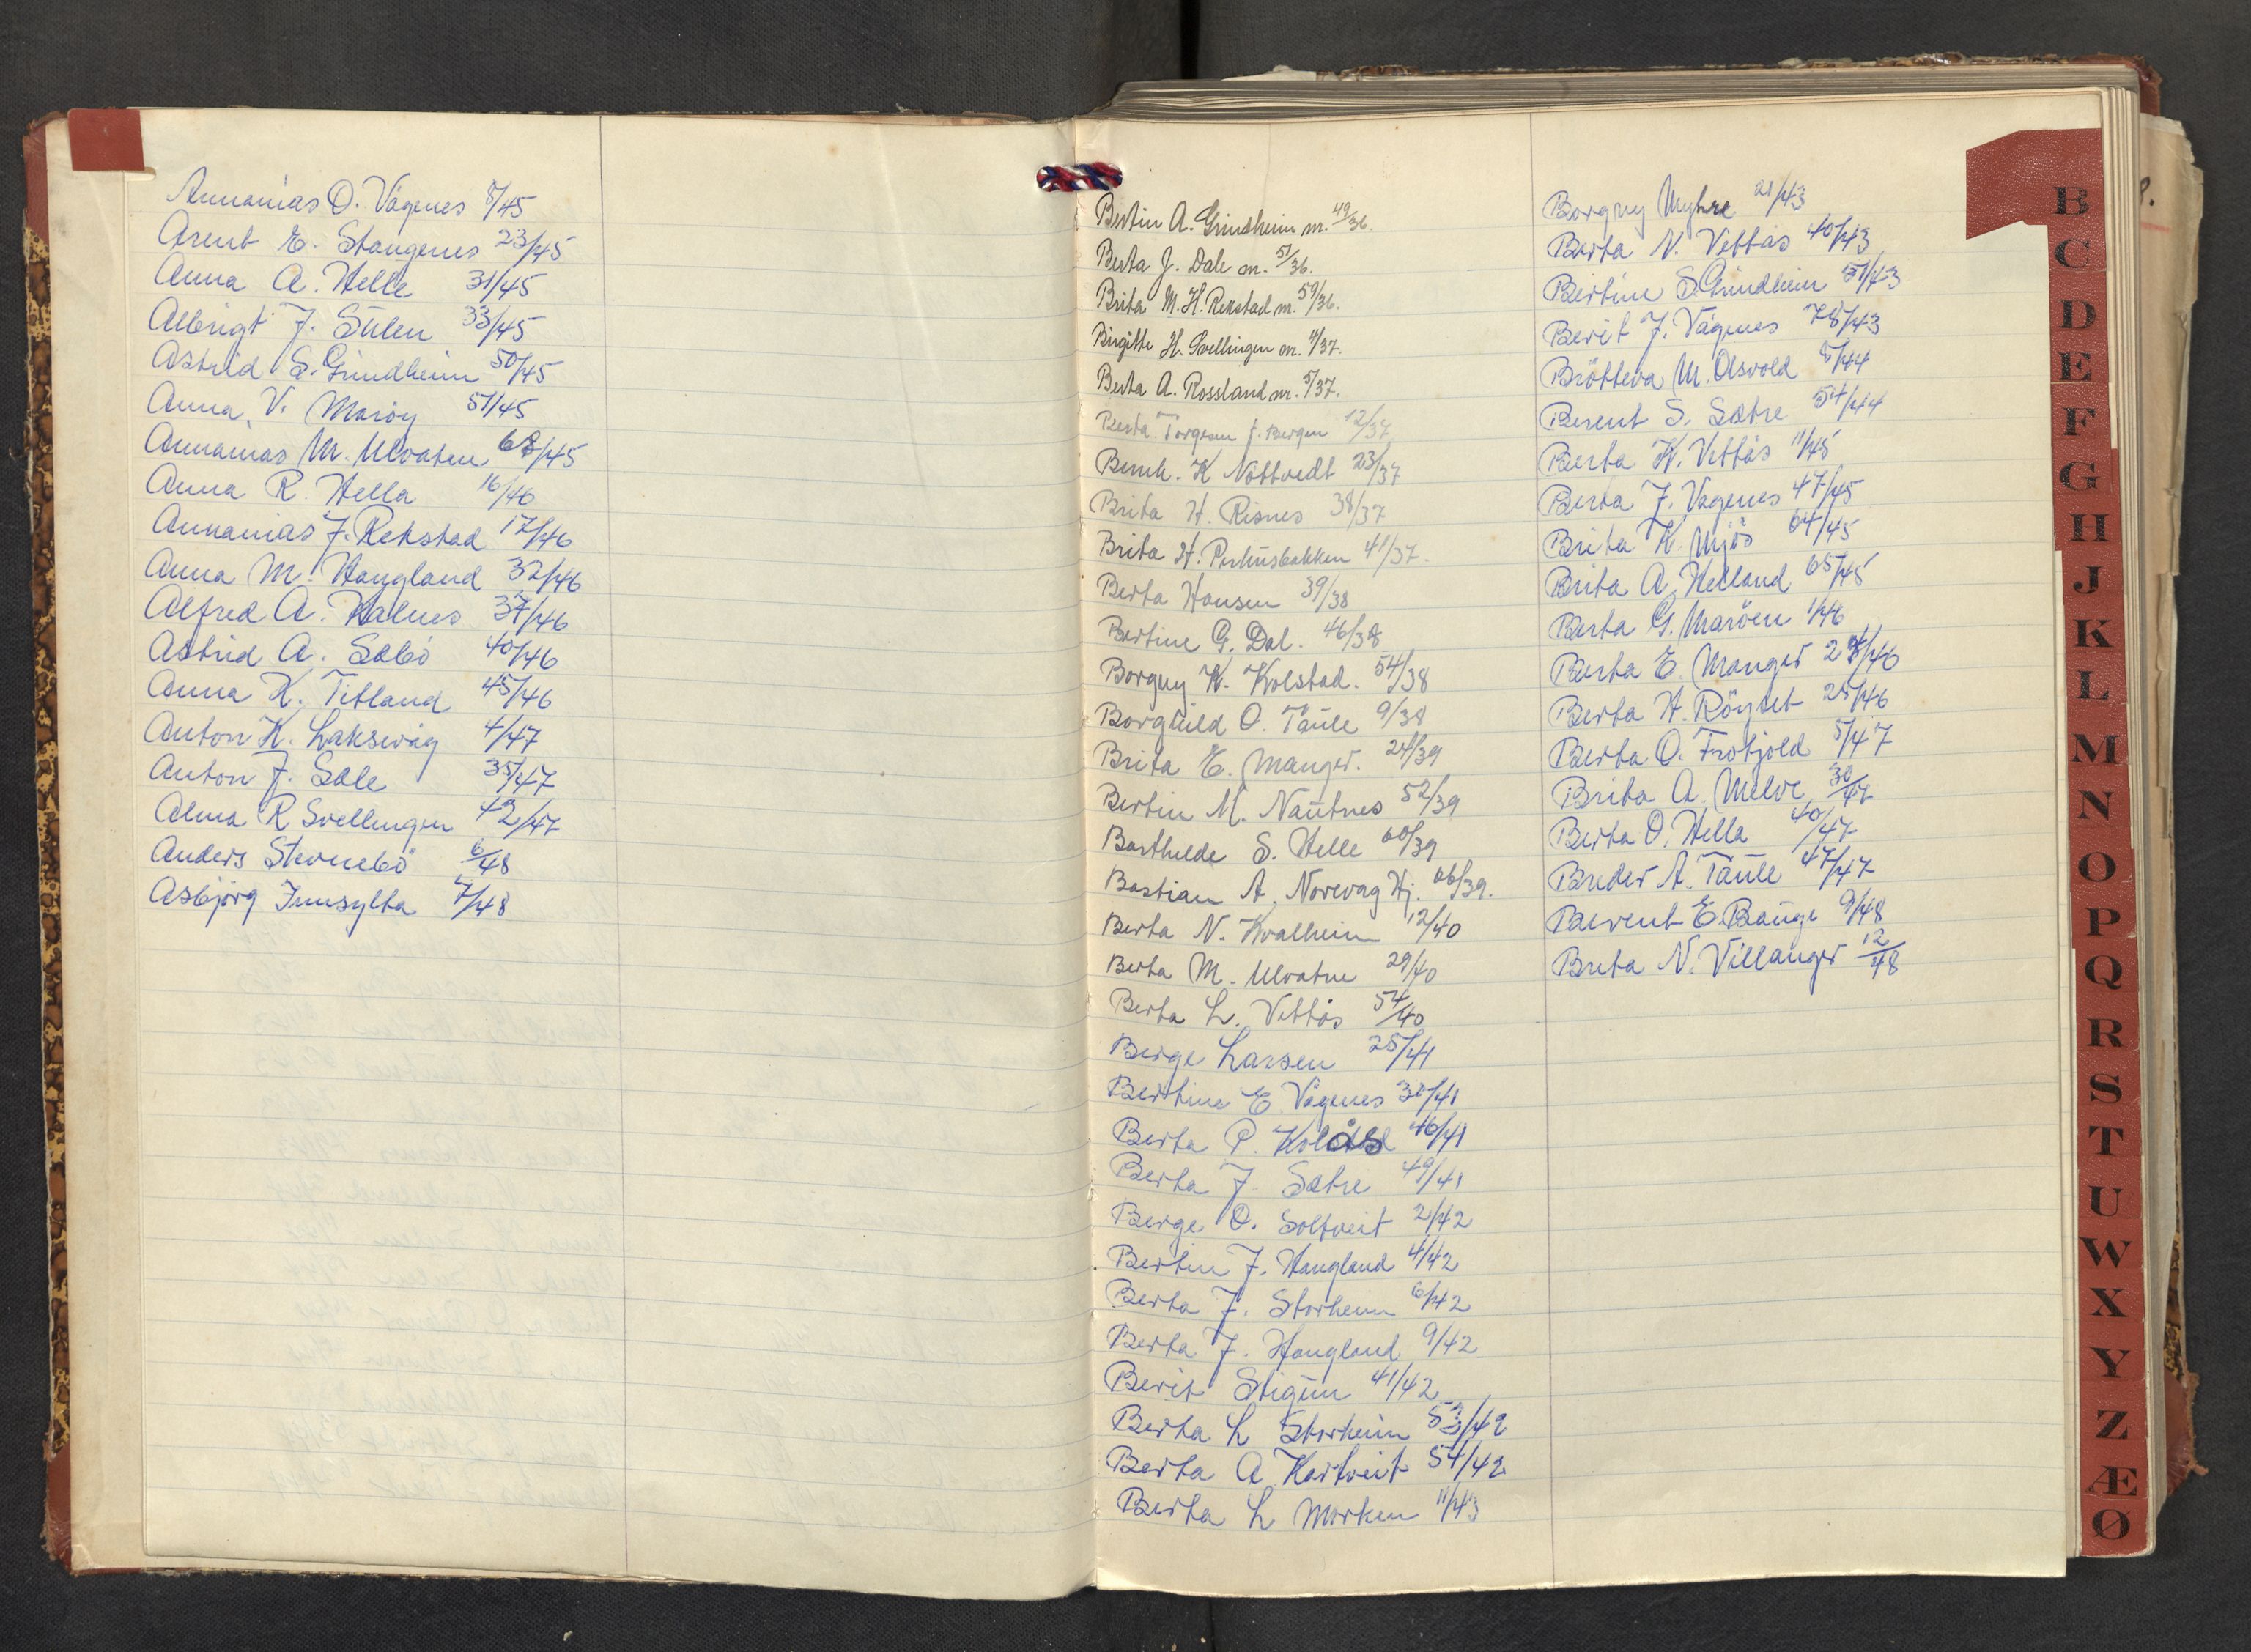 Annanias O. Vågenes 8/45
Arent E. Stangenes 23/45
Anna A. Helle 31/45
Albrigt J. Sülen 33/45
Astrid S. Grindheim 50/45
Anna V. Marøy 51/45
Annanias M. Ulvatne 68/45
Anna R. Hella 16/46
Annanias J. Rekstad 17/46
Anna M. Haugland 32/46
Alfred A. Kalnes 37/46
Astrid A. Sæbö 40/46
Anna K. Titland 45/46
Anton K. Laksevåg 4/47
Anton J. Sæle 35/47
Alma R Svellingen 42/47
Anders Stevnebö 6/48
Asbjørg Innsylta 7/48
Bertin A. Grindheim nr. 49/36.
Berta J. Dale nr. 51/36.
Brita M. H. Rekstad nr. 59/36.
Birgitte H. Svellingen nr. 4/37.
Berta A. Rossland nr. 5/37.
Berta Torgersen f. Bergen 12/37
Bernh. K Nöttvedt 23/37
Brita H. Risnes 38/37
Brita H. Perhusbakken 41/37.
Berta Hansen 39/38
Bertine G. Dal. 46/38
Borgny K. Kolstad. 54/38
Borghild O. Taüle 9/38
Brita E. Manger. 24/39
Bertin M. Naütnes 52/39
Barthilde S. Helle 60/39
Bastian A. Norevåg Hj. 66/39.
Berta N. Kvalheim 12/40
Berta M. Ulvatne 29/40
Berta L. Vettås 54/40
Berge Larsen 25/41
Bertine E Vågenes 30/41
Berta P. Kolås 46/41
Berta J. Sætre 49/41
Berge O. Soltveit 2/42
Bertin J. Haugland 4/42
Berta J. Storheim 6/42
Berta J. Haugland 9/42
Berit Stigüm 41/42
Berta L Storheim 53/42
Berta A. Hartveit 54/42
Berta L Morken 11/43
Borgny Myhre 21/43
Berta N. Vettås 40/43
Bertine S. Grindheim 51/43
Berit J. Vågenes 78/43
Brötteva M. Åsvold 5/44
Berent S. Sætre 54/44
Berta K. Vettås 11/45
Berta J. Vågenes 47/45
Brita K. Mjös 64/45
Brita A. Helland 65/45
Berta G. Maröen 1/46
Berta E. Manger 24/46
Berta H. Röyset 25/46
Berta O. Frotjold 5/47
Brita A. Melve 30/47
Berta O. Hella 40/47
Breder A. Taüle 47/47
Berent E. Baüge 9/48
Brita N. Villanger 12/48
B
C
D
E
F
G
H
J
K
L
M
N
O
P
Q
R
S
T
U
W
X
Y
Z
Æ
Ø